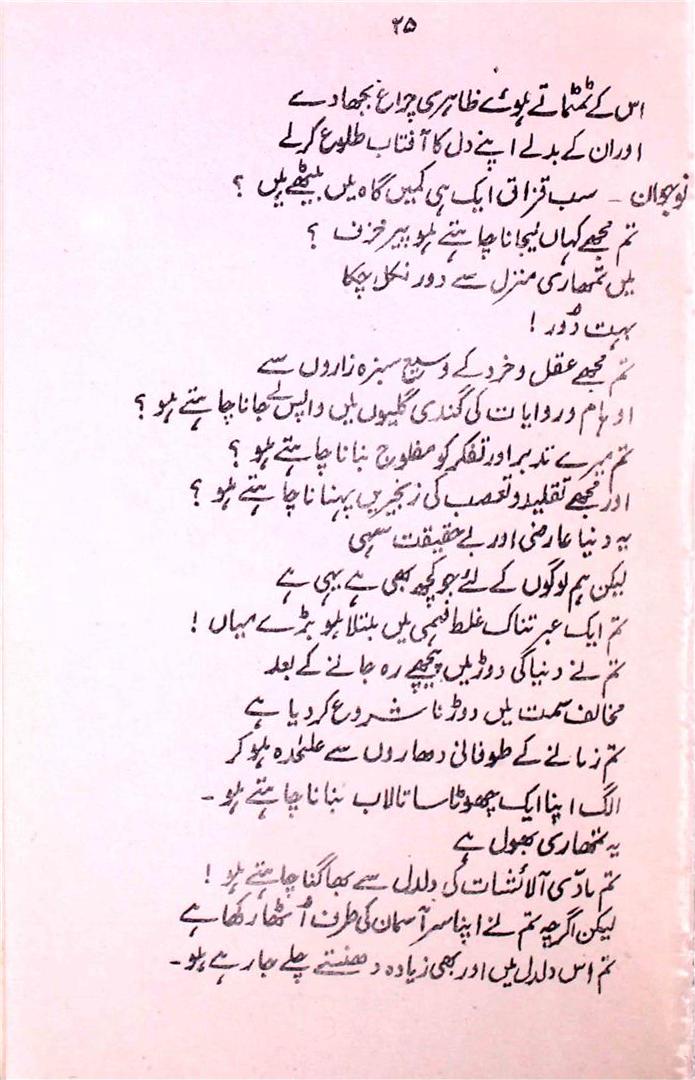 ۲۵
اس کے ٹمٹماتے ہوئے ظاہری چراغ بجھا دے
اور ان کے بدلے اپنے دل کا آفتاب طلوع کرلے
نوجوان - سب قزاق ایک ہی کمیں گاہ میں بیٹھے ہیں ؟
تم مجھے کہاں لیجانا چاہتے ہو پیر خزف ؟
میں تمھاری منزل سے دور نکل چکا
بہت دُور !
تم مجھے عقل و خرد کے وسیع سبزہ زاروں سے
اوہام و روایات کی گندی گلیوں میں واپس لے جانا چاہتے ہو ؟
تم میرے تدبر اور تفکر کو مفلوج بنانا چاہتے ہو ؟
اور مجھے تقلید و تعصب کی زنجیریں پہنانا چاہتے ہو ؟
یہ دنیا عارضی اور بے حقیقت سہی
لیکن ہم لوگوں کے لئے جو کچھ بھی ہے یہی ہے
تم ایک عبرتناک غلط فہمی میں مبتلا ہو بڑے میاں !
تم نے دنیا کی دوڑ میں پیچھے رہ جانے کے بعد
مخالف سمت میں دوڑنا شروع کر دیا ہے
تم زمانے کے طوفانی دھاروں سے علٰحدہ ہو کر
الگ اپنا ایک چھوٹا سا تالاب بنانا چاہتے ہو -
یہ تمھاری بھول ہے
تم مادّی آلائشات کی دلدل سے بھاگنا چاہتے ہو !
لیکن اگرچہ تم نے اپنا سر آسمان کی طرف اُٹھا رکھا ہے
تم اس دلدل میں اور بھی زیادہ دھنستے چلے جا رہے ہو -